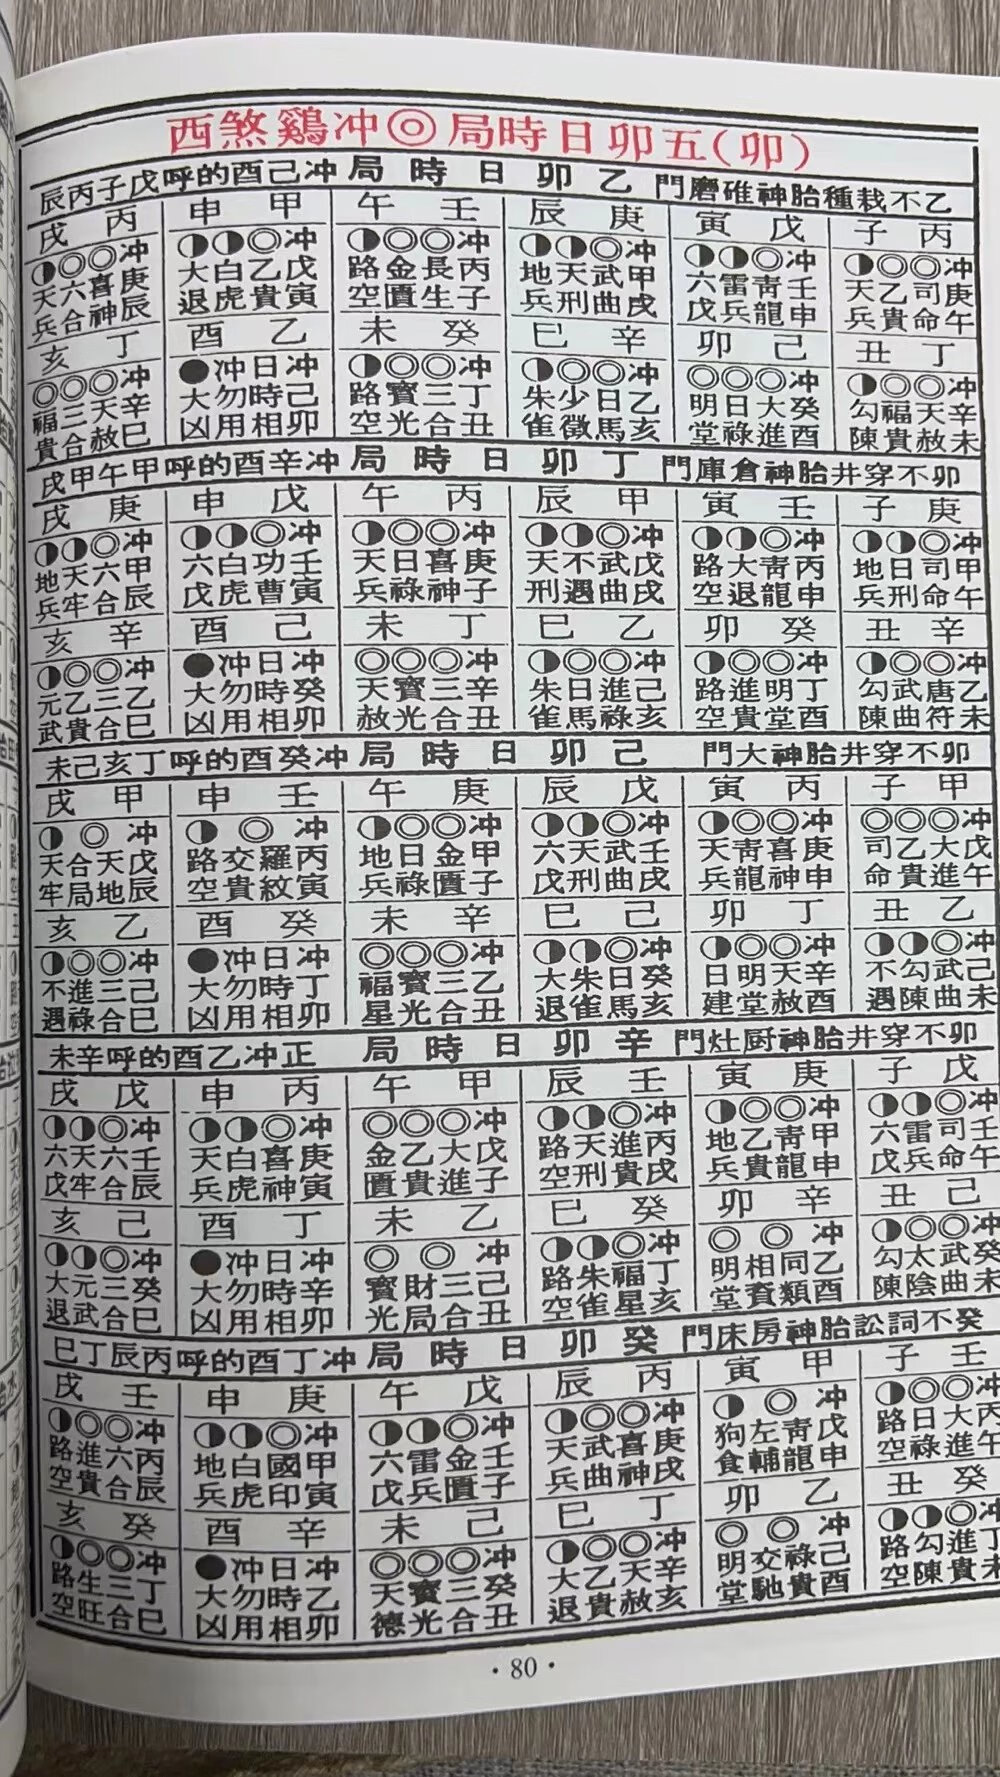 (卯)五卯日時局◎冲鷄煞西
乙不栽種胎神碓磨門 乙卯日時局 冲己酉的呼戊子丙辰
丙子
冲庚午 ◎司命 ◎乙貴 ◑天兵
戊寅
冲壬申 ◎青龍 ◑雷兵 ◑六戊
庚辰
冲甲戌 ◎武曲 ◑天刑 ◑地兵
壬午
冲丙子 ◎長生 ◎金匱 ◑路空
甲申
冲戊寅 ◎乙貴 ◑白虎 ◑大退
丙戌
冲庚辰 ◎喜神 ◎六合 ◑天兵
丁丑
冲辛未 ◎天赦 ◎福貴 ◑勾陳
己卯
冲癸酉 ◎大進 ◎日祿 ◎明堂
辛巳
冲乙亥 ◎日馬 ◎少徵 ◑朱雀
癸未
冲丁丑 ◎三合 ◎寶光 ◑路空
乙酉
冲己卯 日時相 冲勿用 ●大凶
丁亥
冲辛巳 ◎天赦 ◎三合 ◎福貴
卯不穿井胎神倉庫門 丁卯日時局 冲辛酉的呼甲午甲戌
庚子
冲甲午 ◎司命 ◑日刑 ◑地兵
壬寅
冲丙申 ◎青龍 ◑大退 ◑路空
甲辰
冲戊戌 ◎武曲 ◑不遇 ◑天刑
丙午
冲庚子 ◎喜神 ◎日祿 ◑天兵
戊申
冲壬寅 ◎功曹 ◑白虎 ◑六戊
庚戌
冲甲辰 ◎六合 ◑天牢 ◑地兵
辛丑
冲乙未 ◎唐符 ◎武曲 ◑勾陳
癸卯
冲丁酉 ◎明堂 ◎進貴 ◑路空
乙巳
冲己亥 ◎進祿 ◎日馬 ◑朱雀
丁未
冲辛丑 ◎三合 ◎寶光 ◎天赦
己酉
冲癸卯 日時相 冲勿用 ●大凶
辛亥
冲乙巳 ◎三合 ◎乙貴 ◑元武
卯不穿井胎神大門 己卯日時局 冲癸酉的呼丁亥己未
甲子
冲戊午 ◎大進 ◎乙貴 ◎司命
丙寅
冲庚申 ◎喜神 ◎青龍 ◑天兵
戊辰
冲壬戌 ◎武曲 ◑天刑 ◑六戊
庚午
冲甲子 ◎金匱 ◎日祿 ◑地兵
壬申
冲丙寅 ◎羅紋交貴 ◑路空
甲戌
冲戊辰 ◎天地合局 ◑天牢
乙丑
冲己未 ◎武曲 ◑勾陳 ◑不遇
丁卯
冲辛酉 ◎天赦 ◎明堂 ◑日建
己巳
冲癸亥 ◎日馬 ◑朱雀 ◑大退
辛未
冲乙丑 ◎三合 ◎寶光 ◎福星
癸酉
冲丁卯 日時相 冲勿用 ●大凶
乙亥
冲己巳 ◎三合 ◎進祿 ◑不遇
卯不穿井胎神厨灶門 辛卯日時局 正冲乙酉的呼辛未
戊子
冲壬午 ◎司命 ◑雷兵 ◑六戊
庚寅
冲甲申 ◎青龍 ◎乙貴 ◑地兵
壬辰
冲丙戌 ◎進貴 ◑天刑 ◑路空
甲午
冲戊子 ◎大進 ◎乙貴 ◎金匱
丙申
冲庚寅 ◎喜神 ◑白虎 ◑天兵
戊戌
冲壬辰 ◎六合 ◑天牢 ◑六戊
己丑
冲癸未 ◎武曲 ◎太陰 ◑勾陳
辛卯
冲乙酉 ◎同類相資 ◎明堂
癸巳
冲丁亥 ◎福星 ◑朱雀 ◑路空
乙未
冲己丑 ◎三合財局 ◎寶光
丁酉
冲辛卯 日時相 冲勿用 ●大凶
己亥
冲癸巳 ◎三合 ◑元武 ◑大退
癸不詞訟胎神房床門 癸卯日時局 冲丁酉的呼丙辰丁巳
壬子
冲丙午 ◎大進 ◎日祿 ◑路空
甲寅
冲戊申 ◎青龍左輔 ◑狗食
丙辰
冲庚戌 ◎喜神 ◎武曲 ◑天兵
戊午
冲壬子 ◎金匱 ◑雷兵 ◑六戊
庚申
冲甲寅 ◎國印 ◑白虎 ◑地兵
壬戌
冲丙辰 ◎六合 ◎進貴 ◑路空
癸丑
冲丁未 ◎進貴 ◑勾陳 ◑路空
乙卯
冲己酉 ◎祿貴交馳 ◎明堂
丁巳
冲辛亥 ◎天赦 ◎乙貴 ◑大退
己未
冲癸丑 ◎三合 ◎寶光 ◎天德
辛酉
冲乙卯 日時相 冲勿用 ●大凶
癸亥
冲丁巳 ◎三合 ◎生旺 ◑路空
·80·